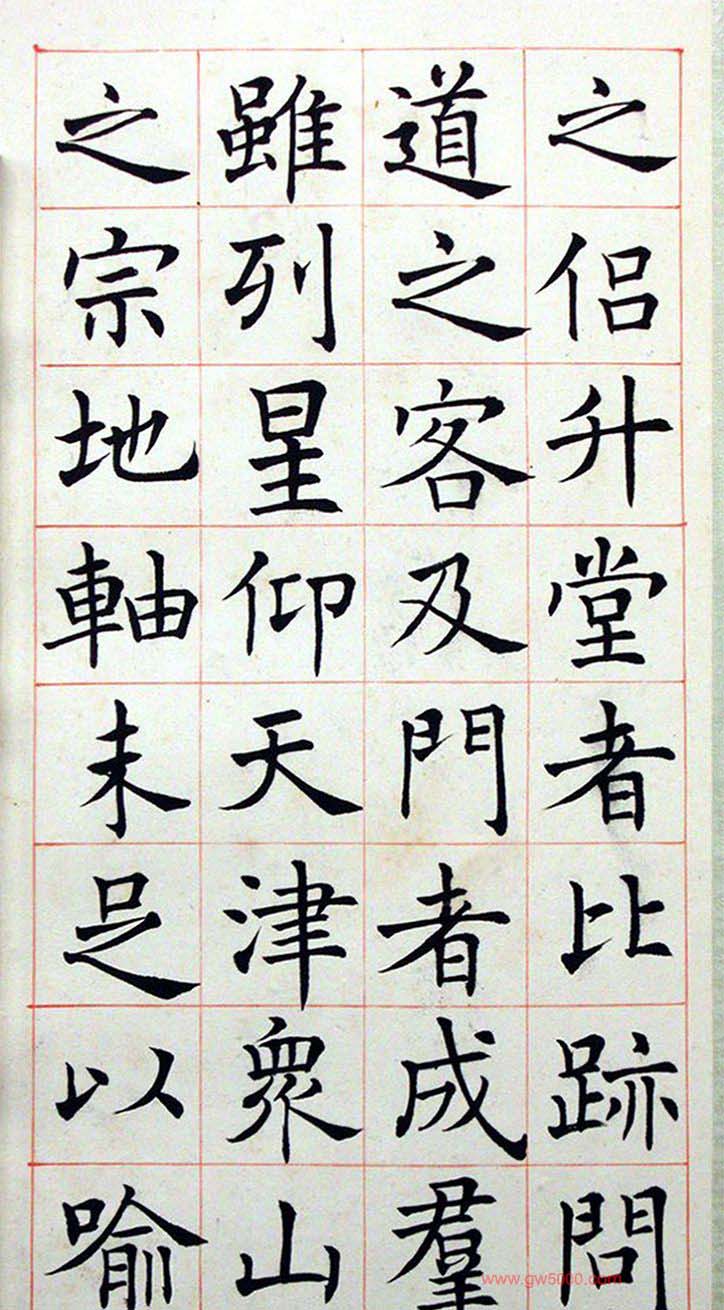 之侶升堂者比跡問
道之客及門者成羣
雖列星仰天津衆山
之宗地軸未足以喻
www.gw5000.com